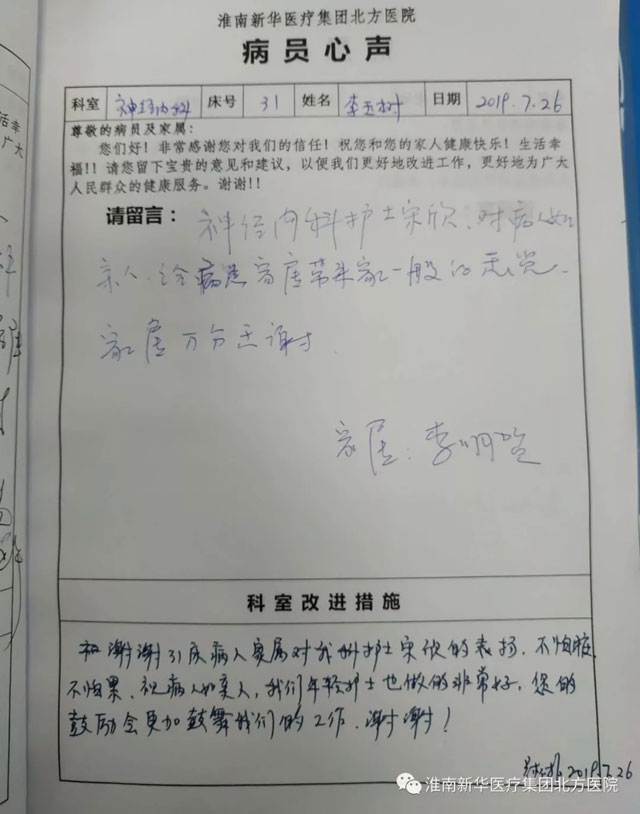 淮南新华医疗集团北方医院
病员心声
科室 神经内科 床号 31 姓名 李玉树 日期 2019.7.26
尊敬的病员及家属:
您们好!非常感谢您对我们的信任!祝您和您的家人健康快乐!生活幸
福!!请您留下宝贵的意见和建议,以便我们更好地改进工作,更好地为广大
人民群众的健康服务。谢谢!!
请留言: 神经内科护士宋欣.对病人如
亲人.给病患家属带来家一般的感觉.
家属万分感谢.
家属:李明
科室改进措施
谢谢31床病人家属对我科护士宋欣的表扬.不怕脏
不怕累.视病人如亲人,我们年轻护士也做的非常好,您的
鼓励会更加鼓舞我们的工作.谢谢!
2019.7.26
淮南新华医疗集团北方医院